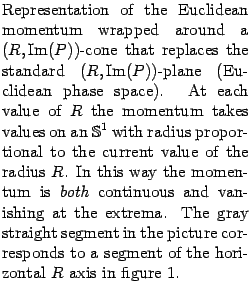 Representation of the Euclidean
momentum wrapped around a
(R, Im(P))-cone that replaces the
standard (R, Im(P))-plane (Eu-
clidean phase space). At each
value of R the momentum takes
values on an 𝕊¹ with radius propor-
tional to the current value of the
radius R. In this way the momen-
tum is both continuous and van-
ishing at the extrema. The gray
straight segment in the picture cor-
responds to a segment of the hori-
zontal R axis in figure 1.